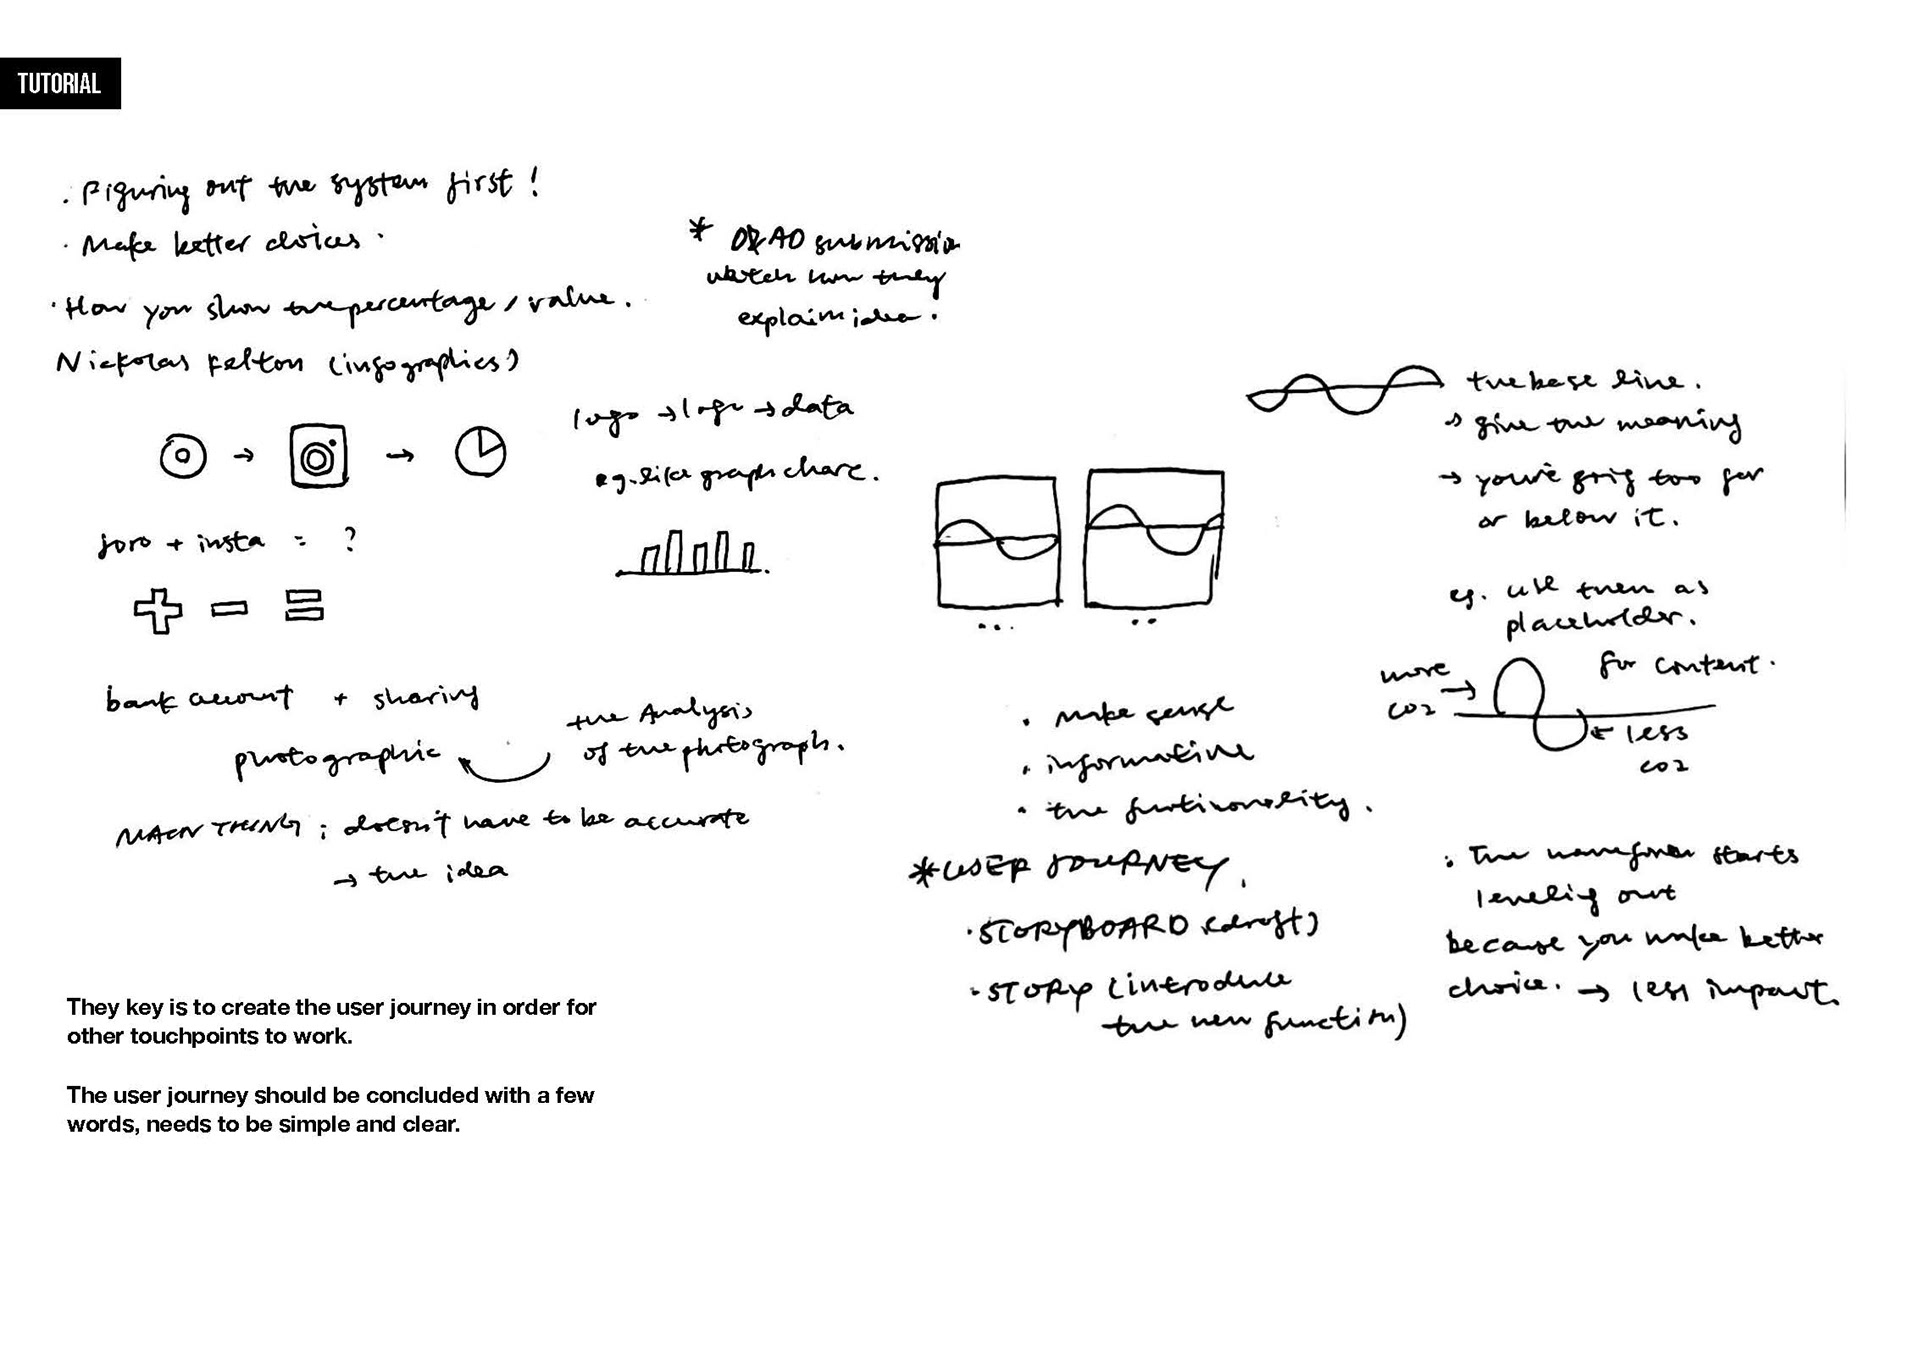 TUTORIAL
. Figuring out the system first !
. Make better choices .
. How you show the percentage / value .
Nickolas Felton (infographics)
* D&AD submission
watch how they
explain idea .
logo → logo → data
eg. like graph chart .
joro + insta = ?
bank account + sharing
photographic
the Analysis
of the photograph .
MAIN THING : doesn't have to be accurate
→ the idea
the base line .
→ give the meaning
→ you're going too far
or below it .
eg. use them as
placeholder .
for content .
more
CO2
less
CO2
. make sense
. informative
. the functionality .
* USER JOURNEY .
. STORYBOARD (draft)
. STORY (introduce
the new function)
: The waveform starts
leveling out
because you make better
choice . → less impact .
They key is to create the user journey in order for
other touchpoints to work.
The user journey should be concluded with a few
words, needs to be simple and clear.